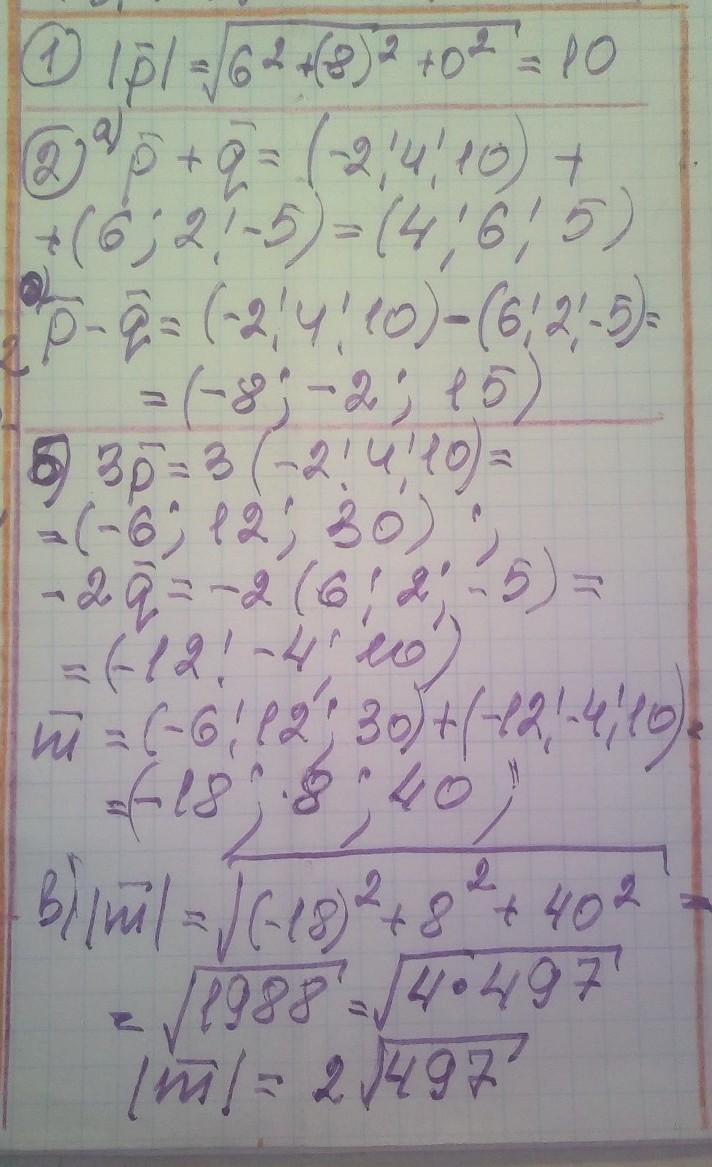 1 |p̄| = √6² + (8)² + 0² = 10
2 а) p̄ + q̄ = (-2; 4; 10) +
+ (6; 2; -5) = (4; 6; 5)
p̄ - q̄ = (-2; 4; 10) - (6; 2; -5) =
= (-8; -2; 15)
б) 3p̄ = 3 (-2; 4; 10) =
= (-6; 12; 30) ;
- 2q̄ = -2 (6; 2; -5) =
= (-12; -4; 10)
m̄ = (-6; 12; 30) + (-12; -4; 10) =
= (-18; 8; 40)
в) |m̄| = √(-18)² + 8² + 40² =
= √1988 = √4·497
|m̄| = 2√497